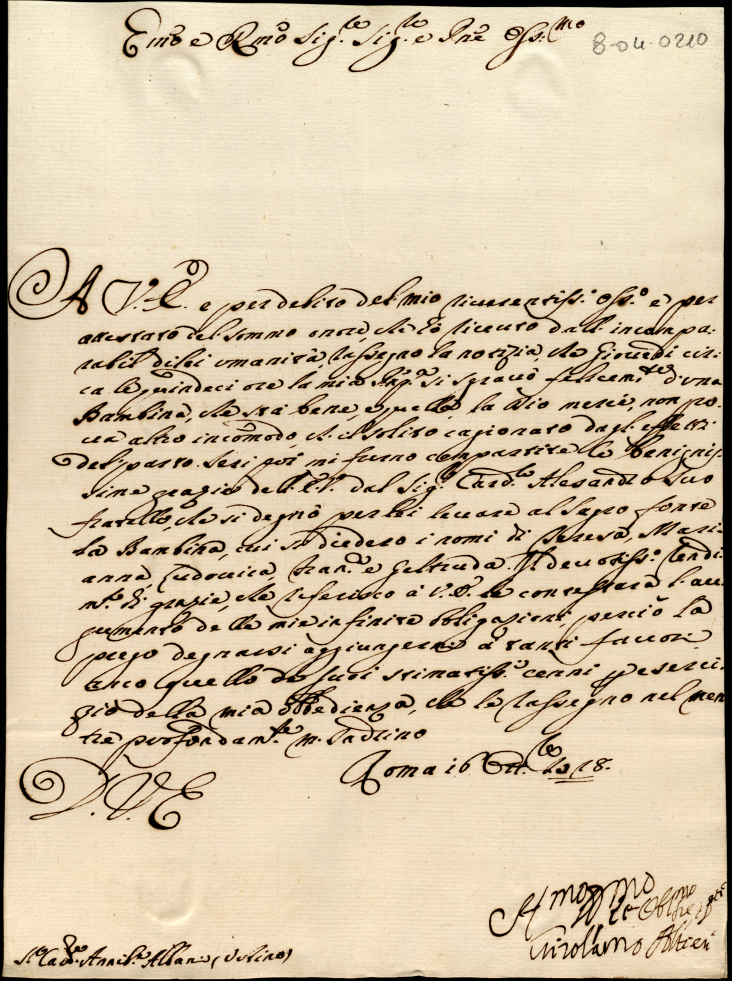 Em̃o e Rm̃o Sig.re Sig.re e Prñe Oss.mo
8-04-0210
A V. E. e per debito del mio riverentiss.o oss.o e per
attestato del sommo onore, che hò riceuto dall' incompa-
rabil di lei umanità, rassegno la notizia, che Giovedi cir-
ca le quindeci ore la mia Sig.ra si sgravò felicem.te d'una
Bambina, che stà bene, e quella la Dio mercè, non pro-
va altro incõmodo, ch' il solito cagionato dagl' effetti
del parto. Jeri poi mi furno compartite le benignis-
sime grazie dell' E.V. dal Sig.r Card.le Alesandro suo
fratello, che si degnò per lei levare al Sagro fonte
la Bambina, cui si diedero i nomi di Teresa, Mari-
anna, Ludovica, Fran.ca e Geltruda. Il devotiss.o rendi-
m.to di grazie, che riferisco à V.E. le contestarà l'au-
gumento delle mie infinite obligazioni, perciò la
prego degnarsi aggiungere à tanti favori
anco quello de suoi stimatiss.i cenni p eserci-
zio della mia obbedienza, che le rassegno nel men-
tre profondam.te m'inchino
Roma 16 Ott.bre 1718.
D. V. E
S.r Card.le Annib.e Albani (Urbino)
Girolamo Altieri